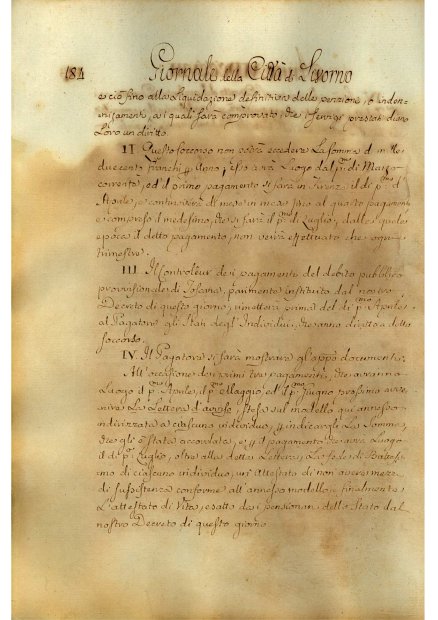 184 Giornale della Città di Livorno
e ciò fino alla Liquidazione definitiva delle pensione, o inden-
nizzamenti, a i quali sarà comprovato, che i servigi prestati diano
Loro un diritto.
II Questo soccorso non potrà eccedere La somma di mille
duecento franchi Anno; esso avrà Luogo dal p.mo di Marzo
corrente, ed il primo pagamento si farà in Firenze il dì p.mo d'
Aprile, e continuerà di mese in mese fino al quarto pagamento
e compreso il medesimo, che si farà il p.mo di Luglio, dalla quale
epoca il detto pagamento, non verrà effettuato che ogni
trimestre.
III. Il Controleur de i pagamenti del debito pubblico
provvisionale di Toscana, parimente instituito dal nostro
Decreto di questo giorno, rimetterà prima del dì p.mo Aprile
al Pagatore gli Stati degl'Individui, che anno diritto a detto
soccorso.
IV. Il Pagatore si farà mostrare gl'appo documenti.
All'occasione dei primi tre pagamenti, che avranno
Luogo il p.mo Aprile, il p.mo Maggio ed il p.mo Giugno prossimo avve-
nire La Lettera d'avviso, stesa sul modello qui annesso
indirizzata a ciascuno individuo, indicargli La somma,
che gli è stata accordata, e il pagamento che avrà Luogo
il dì p.mo Luglio, oltre alla detta Lettera, La fede di Battesi-
mo di ciascuno individuo, un'Attestato di non avere mezzi
di sussistenza conforme all'annesso modello, e finalmente
L'attestato di Vita, esatto da i pensionari dello Stato dal
nostro Decreto di questo giorno